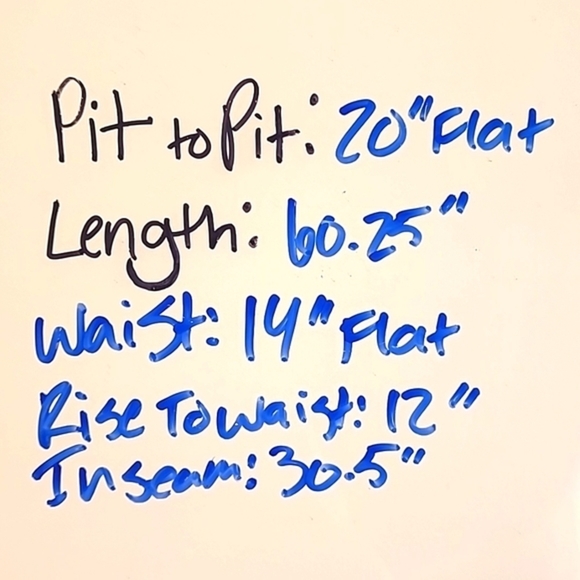 Pit to Pit: 20" Flat
Length: 60.25"
Waist: 14" Flat
Rise To Waist: 12"
Inseam: 30.5"